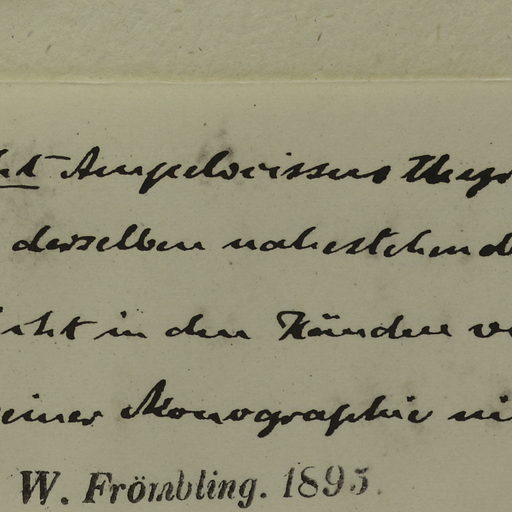 Ampelocissus
derselben nahestehend
in den Händen
einer Monographie
W. Frömbling. 1895.